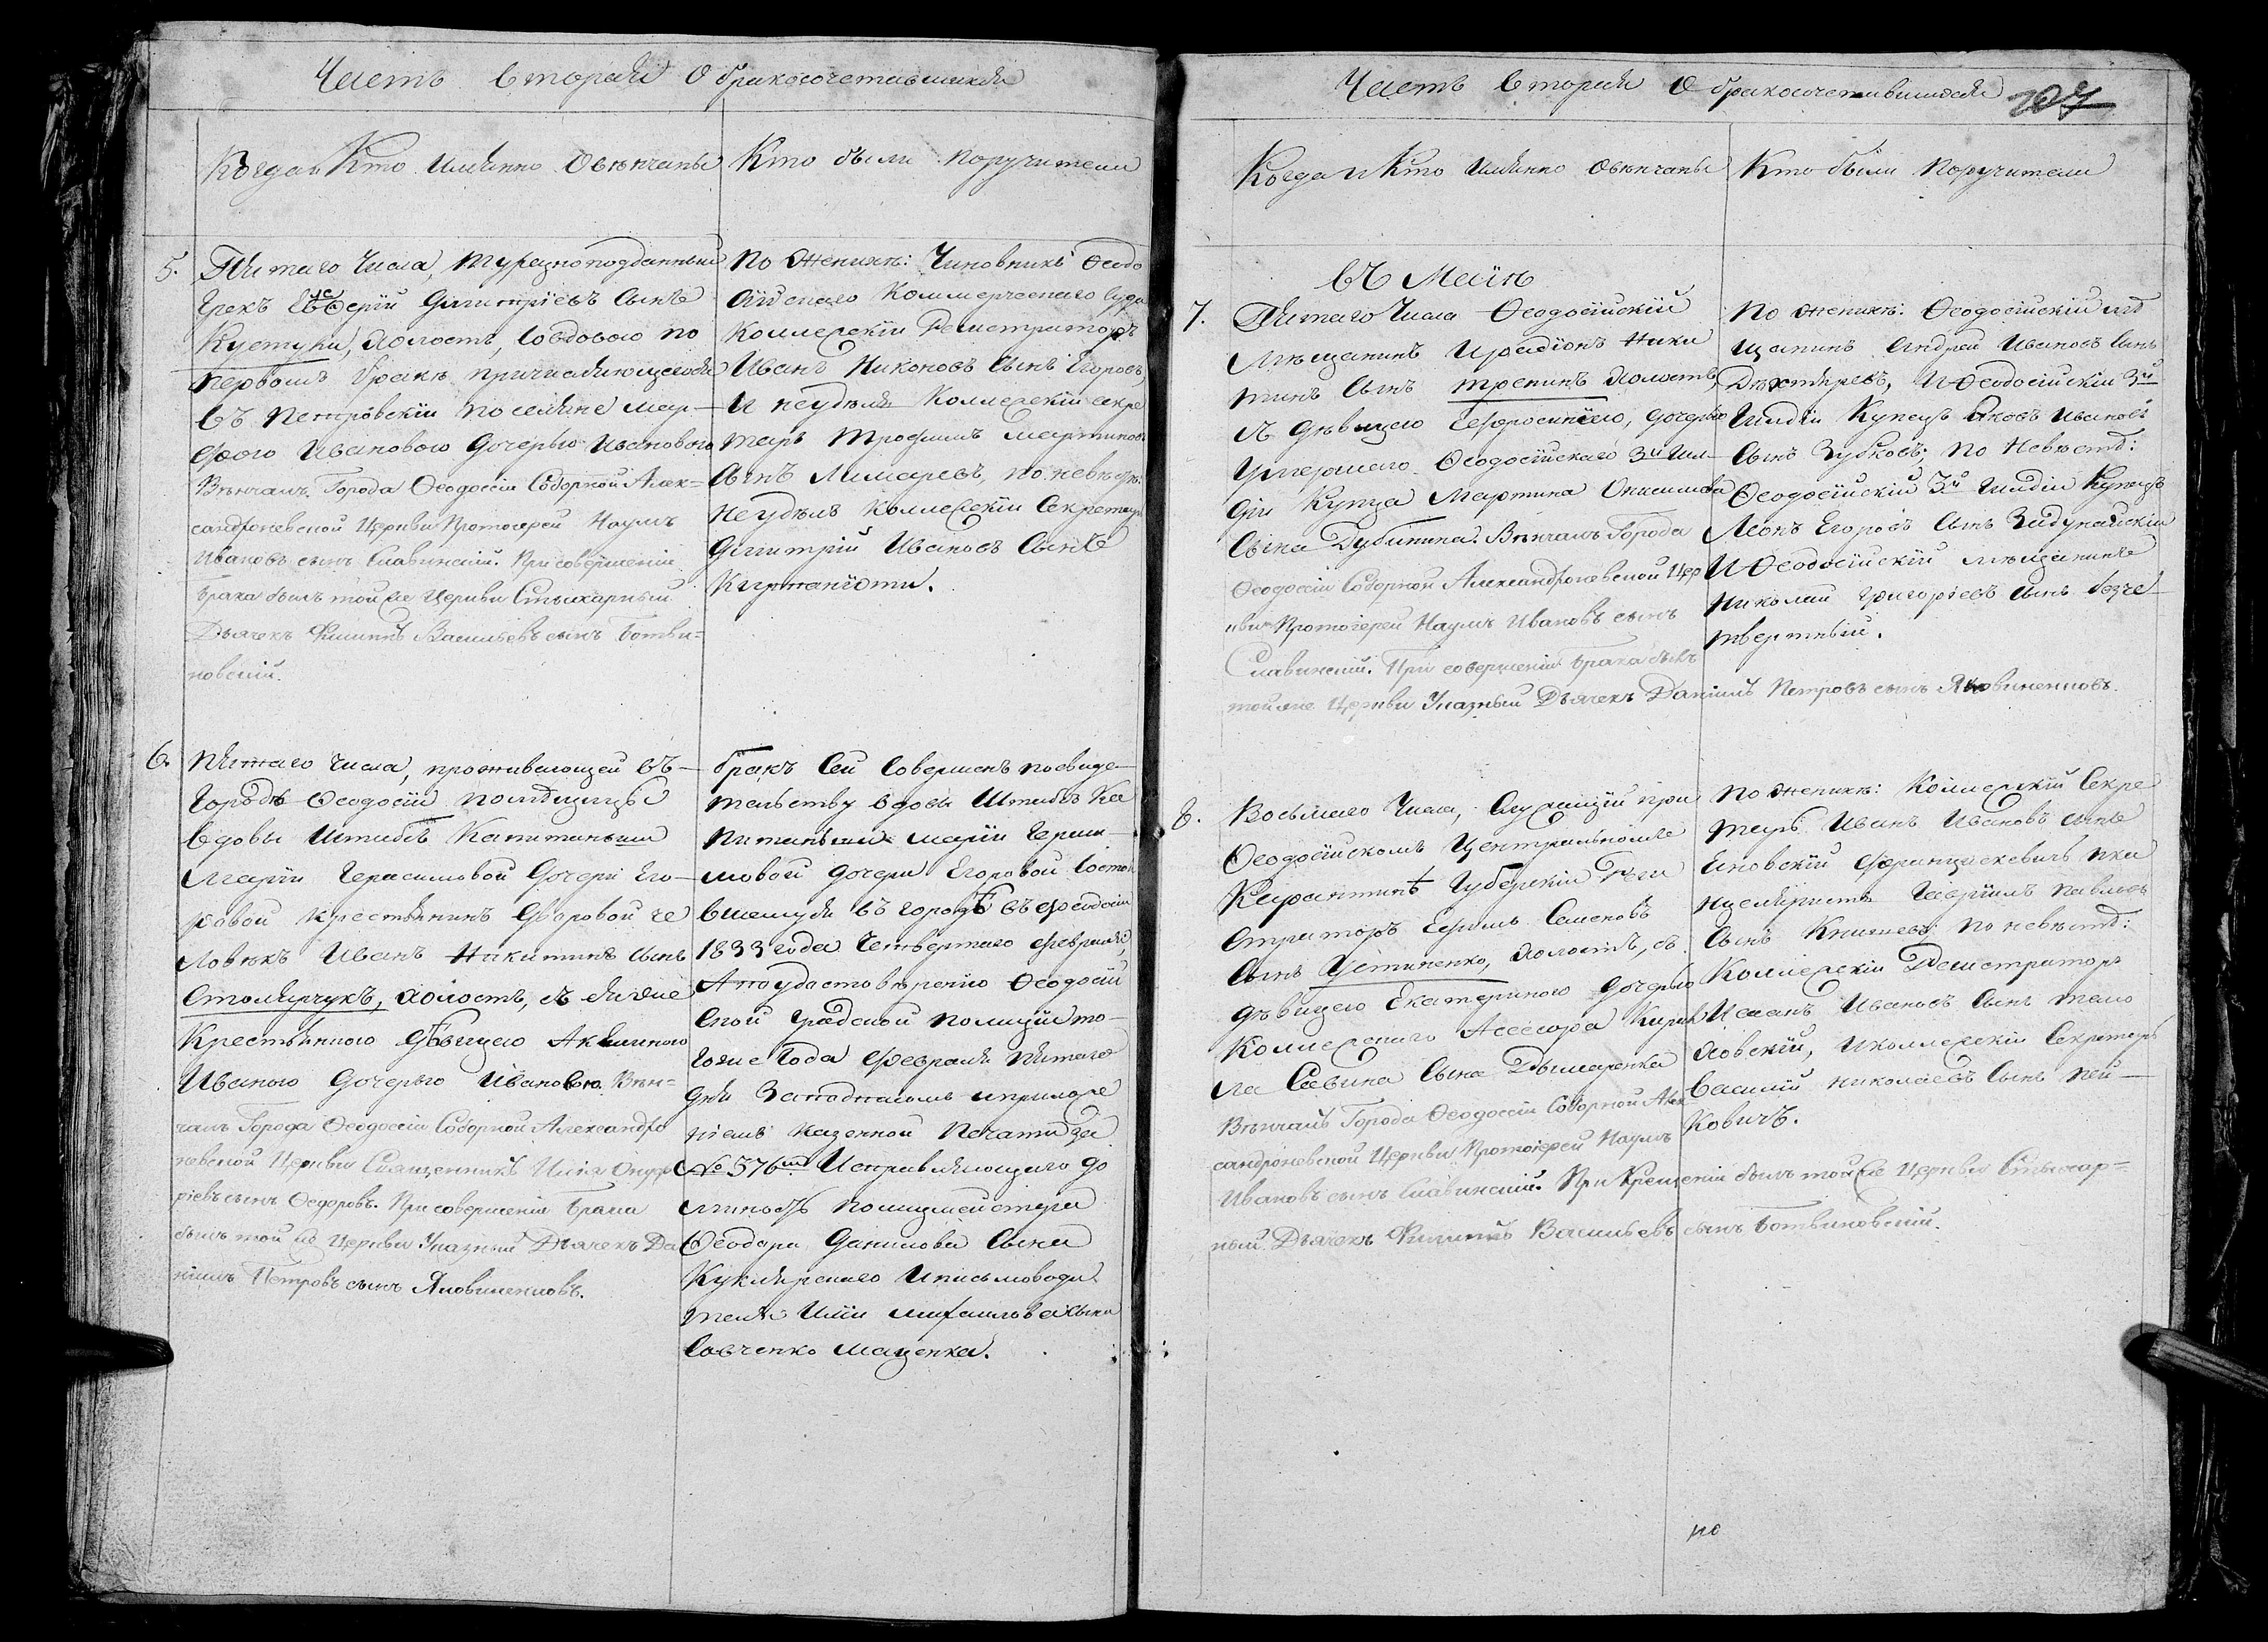 Часть Вторая О бракосочетавшихся
Когда и Кто имянно обвѣнчаны
Кто были поручители
5. Пятаго Числа, Турецкоподданный
Грекъ Дмитріевъ Сынъ
Кустуки, холостъ, совдовою по
первомъ бракѣ причисляющеюся
въ Петровскій поселяне Мар-
фою Ивановою дочерью Ивановою
Вѣнчалъ Города Ѳеодосіи Соборной Алек=
сандроневской Церкви Протоіерей Наумъ
Ивановъ сынъ Славинскій. При совершеніи
брака былъ той же Церкви Стихарный
Дьячекъ Филиппъ Васильевъ сынъ Ботви=
новскій.
По Женихѣ: Чиновникъ Ѳеодо
сійскаго Коммерческаго Суда
Коллежскій Регистраторъ
Иванъ Никоновъ Сынъ Егоровъ,
И неудѣлъ Коллежскій секре
тарь Трофимъ Мартиновъ
Сынъ Лимаревъ, по невѣстѣ:
Неудѣлъ Коллежскій Секретарь
Дмитрій Ивановъ Сынъ

6. Пятаго Числа, проживающей въ
Городѣ Ѳеодосіи помѣщицы
вдовы Штабсъ Капитанши
Маріи Герасимовой Дочери Его-
ровой крестьянинъ Дворовой че
ловѣкъ Иванъ Никитинъ сынъ
Столярчукъ, холостъ, съ ея же
Крестьянкою дѣвицею Акилиною
Ивановою Дочерью Ивановою. Вѣн=
чалъ Города Ѳеодосіи Соборной Александро
невской Церкви Священникъ Илія Онуф
ріевъ сынъ Ѳедоровъ. При совершеніи Брака
былъ той же Церкви Указный Дьячекъ Да
ніилъ Петровъ сынъ Яковиненковъ.
бракъ Сей Совершенъ по свидѣ-
тельству вдовы Штабсъ Ка
питанши Маріи Гераси-
мовой дочери Егоровой состоя
вшемуся въ городѣ въ Феодосіи
1833 года Четвертаго февраля,
А по удостовѣренію Ѳеодосій
ской Градской полиціи то-
гоже Года Февраля пятаго
дня За подписомъ и приложе
ніемъ казенной Печати за
№ 576м Исправляющаго до
лжность полицмейстера
Ѳеодора Данилова Сына
Куклярскаго И письмоводи
теля Иліи Михаильва Сына
Савченко Маценка.
Часть Вторая О бракосочетавшихся
207
Когда и Кто имянно обвѣнчаны
Кто были поручители
въ Маіѣ
7. Пятаго Числа Ѳеодосійскій
Мѣщанинъ Ирадіонъ Ники
тинъ Сынъ Трепинъ холостъ,
съ дѣвицею Ефросиніею, дочерью
умершаго Ѳеодосійскаго 3й Гил-
діи Купца Мартина Онисимова
Сына Дубинина. Вѣнчалъ Города
Ѳеодосіи Соборной Александроневской Цер
кви Протоіерей Наумъ Ивановъ сынъ
Славинскій. При совершеніи Брака былъ
той же Церкви Указный Дьячекъ Даніилъ Петровъ сынъ Яковиненковъ.
По женихѣ: Ѳеодосійскій мѣ
щанинъ Андрей Ивановъ Сынъ
Дехтяревъ, и Ѳеодосійскій 3й
Гилдіи Купецъ Яковъ Ивановъ
Сынъ Зубковъ; по Невѣстѣ:
Ѳеодосійскій 3й Гилдіи Купецъ
Леонъ Егоровъ Сынъ Задунайскій
И Ѳеодосійскій мѣщанинъ
Николай Григоріевъ Сынъ безче-
твертный.
8. Восьмаго Числа, Служащій при
Ѳеодосійскомъ Центральномъ
Карантинѣ Губернскій Реги
страторъ Ефимъ Семеновъ
Сынъ Устименко, холостъ, съ
дѣвицею Екатериною дочерью
Коллежскаго Асессора Кирил
ла Савина Сына Дымаренка
Вѣнчалъ Города Ѳеодосіи Соборной Алек
сандроневской Церкви Протоіерей Наумъ
Ивановъ сынъ Славинскій. При Крещеніи былъ той же Церкви Стихар=
ный Дьячекъ Филиппъ Васильевъ сынъ Ботвиновскій.
По женихѣ: Коллежскій Секре
тарь Иванъ Ивановъ сынъ
Еновскій Францискевичъ и ка
нцеляристъ Гавріилъ Павловъ
Сынъ по невѣстѣ:
Коллежскій Регистраторъ
Иванъ Ивановъ Сынъ
и коллежскій Секретарь
Василій Николаевъ Сынъ Пей-
ковичъ.